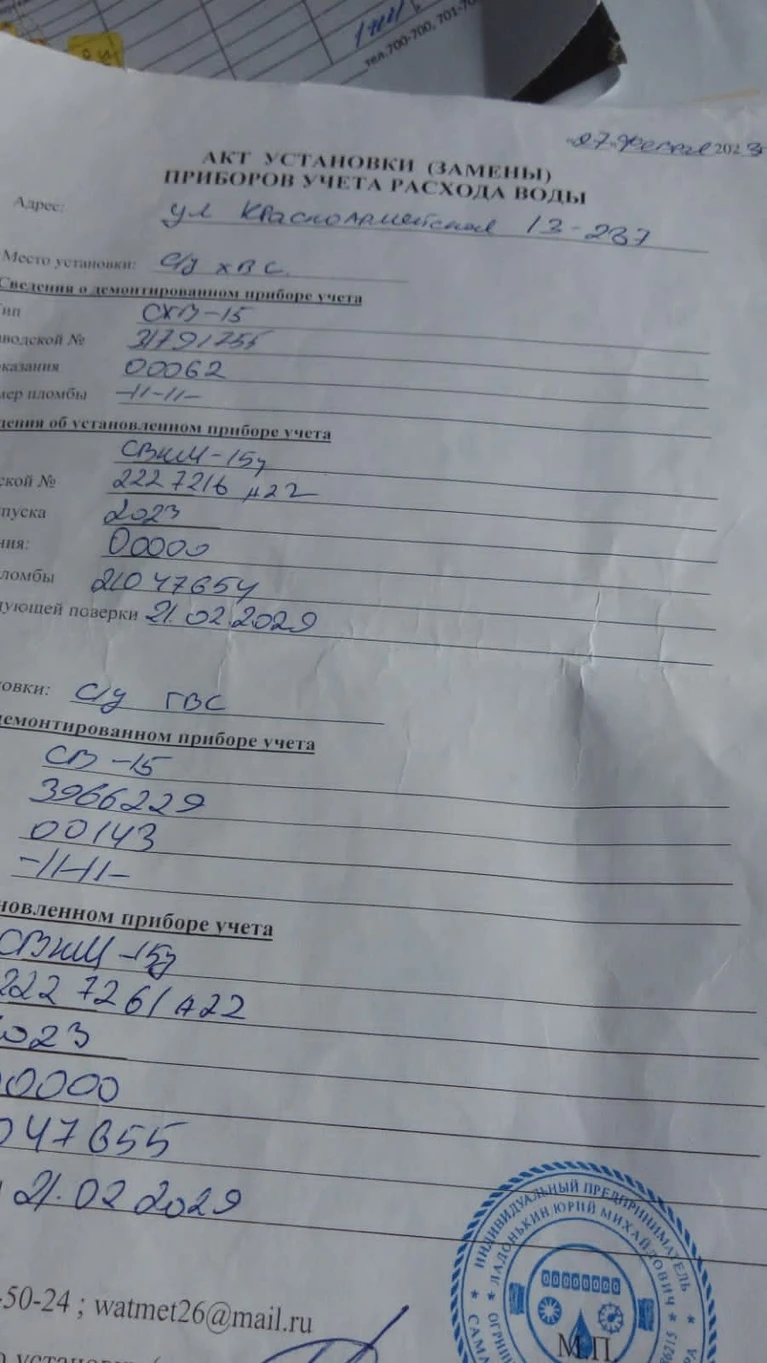 тел.700-700, 701-70
«27» февраля 2023
АКТ УСТАНОВКИ (ЗАМЕНЫ)
ПРИБОРОВ УЧЕТА РАСХОДА ВОДЫ
Адрес: ул Красноармейская 13-237
Место установки: С/у ХВС
Сведения о демонтированном приборе учета
ип СХВ-15
водской № 31791755
казания 00062
мер пломбы -11-11-
ения об установленном приборе учета
СВКМ-15у
ской № 2227216 А22
пуска 2023
ния: 00000
ломбы 21047654
ующей поверки 21.02.2029
овки: С/у ГВС
демонтированном приборе учета
СВ-15
3966229
00143
-11-11-
новленном приборе учета
СВКМ-15у
2227261 А22
2023
00000
047655
21.02 2029
-50-24 ; watmet26@mail.ru
ИНДИВИДУАЛЬНЫЙ ПРЕДПРИНИМАТЕЛЬ
ЛАДОНЬКИН ЮРИЙ МИХАЙЛОВИЧ
М.П.